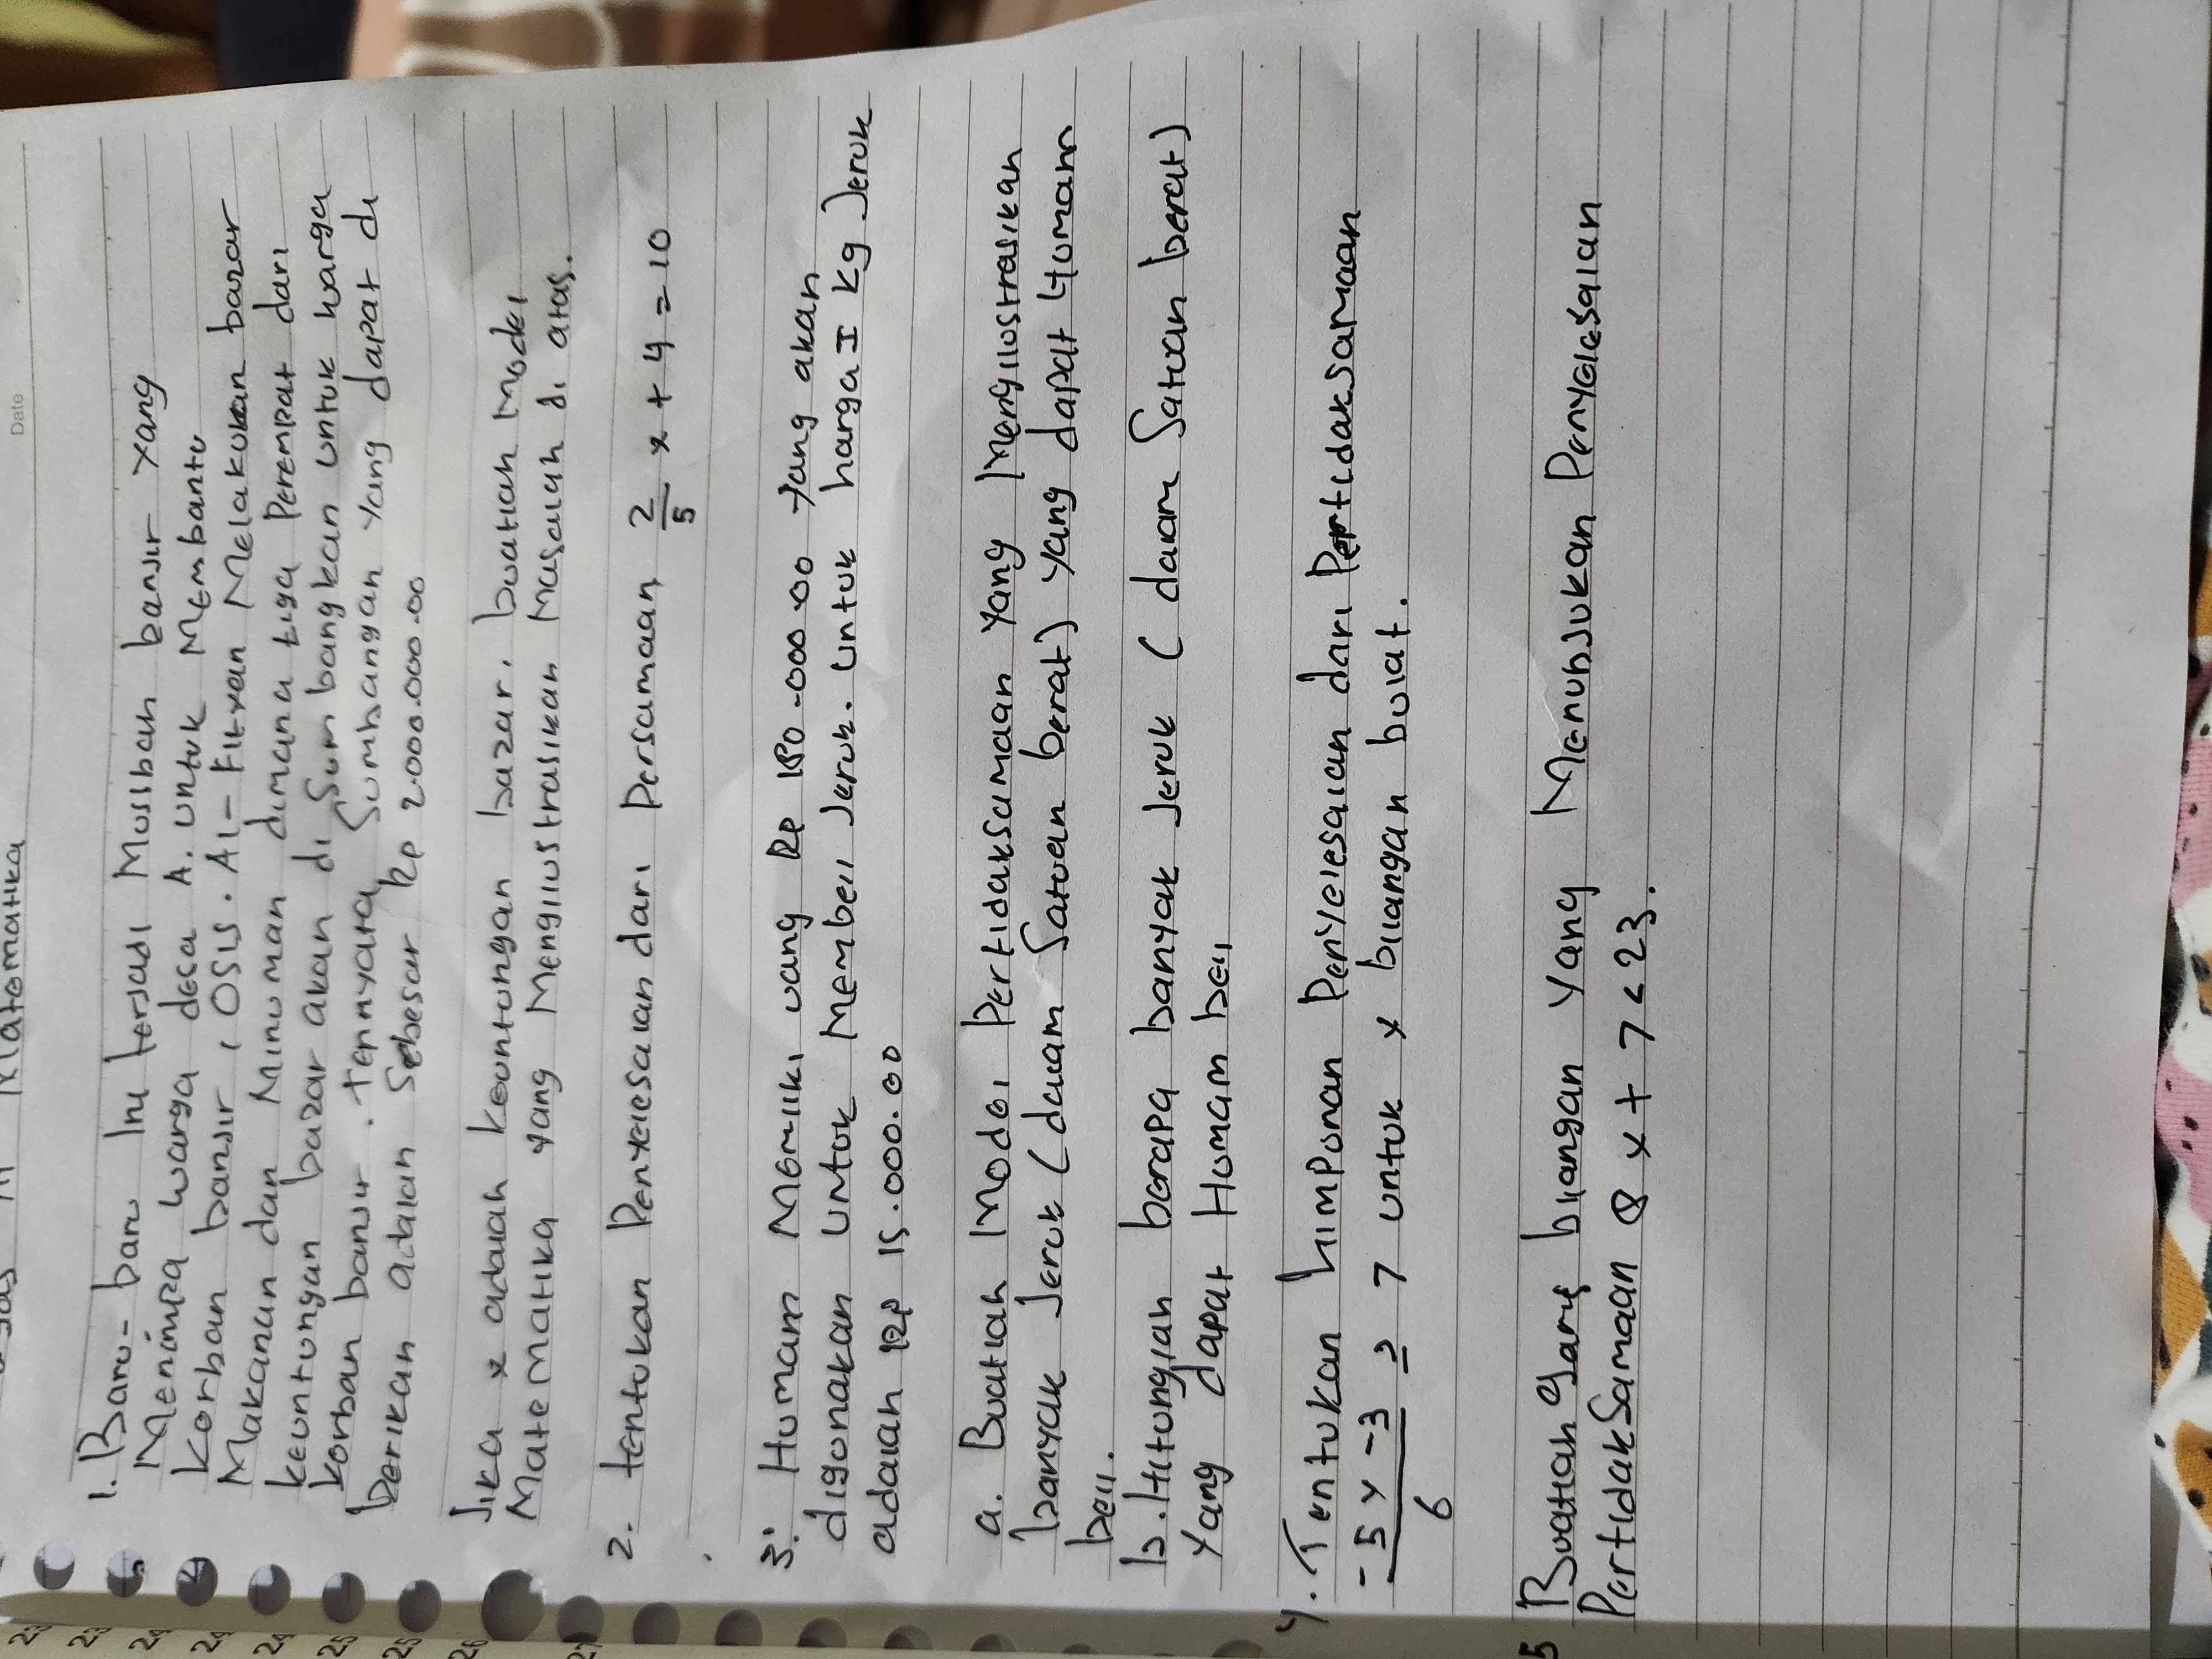 Matematika
Date
1. Baru-baru Ini terjadi Musibah banjir yang
Menimpa warga desa A. Untuk Membantu
korban banjir, OSIS. Al-Fityan Melakukan bazar
Makanan dan Minuman dimana tiga Perempat dari
keuntungan bazar akan di Sumbangkan untuk warga
korban banjir. Ternyata, Sumbangan yang dapat di
berikan adalah Sebesar Rp 2.000.000.00
Jika x adalah keuntungan bazar. buatlah Model
Matematika yang Mengilustrasikan Masalah di atas.
2. tentukan Penyelesaian dari Persamaan 2/5 x + 4 = 10
3. Humam Memiliki uang Rp 180.000.00 yang akan
digunakan untuk Membeli Jeruk. Untuk harga I kg Jeruk
adalah Rp 15.000.00
a. Buatlah Model Pertidaksamaan yang Mengilustrasikan
banyak Jeruk (dalam Satuan berat) yang dapat Humam
beli.
b. Hitunglah berapa banyak Jeruk (dalam Satuan berat)
yang dapat Humam beli
4. Tentukan himpunan Penyelesaian dari Pertidaksamaan
-5x -3 / 6 ≥ 7 untuk x bilangan bulat.
5 Buatlah garis bilangan yang Menunjukan Penyelesaian
PertidakSamaan 8x + 7 < 23.